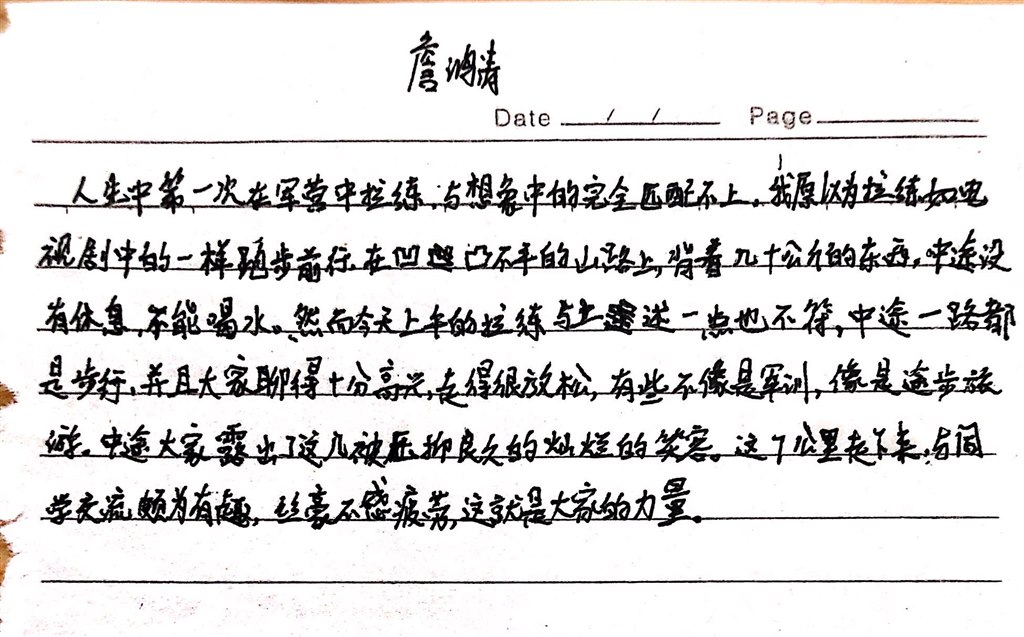 詹鸿涛
Date / / Page
人生中第一次在军营中拉练,与想象中的完全匹配不上。我原以为拉练如电
视剧中的一样跑步前行,在凹凸不平的山路上,背着几十公斤的东西,中途没
有休息,不能喝水。然而今天上午的拉练与上述一点也不符,中途一路都
是步行,并且大家聊得十分高兴,走得很放松,有些不像是军训,像是途步旅
游。中途大家露出了这几被压抑良久的灿烂的笑容。这7公里走下来,与同
学交流颇为有趣,丝毫不感疲劳,这就是大家的力量。